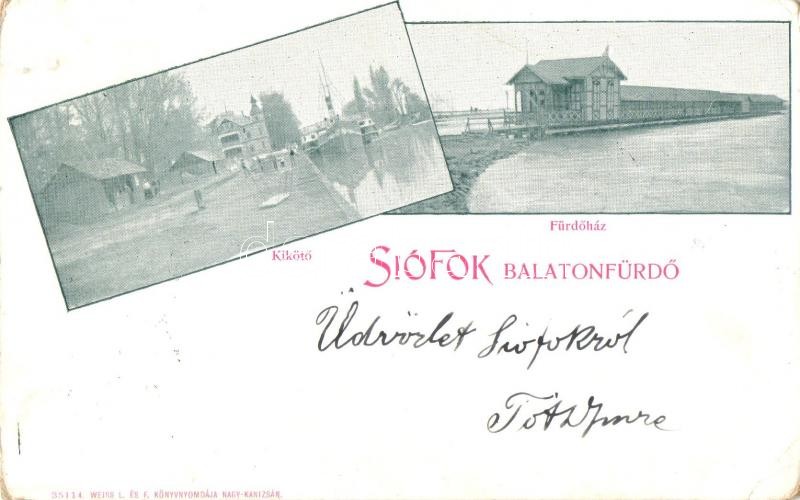 Fürdőház
Kikötő
SIÓFOK BALATONFÜRDŐ
Üdvözlet Siófokról
Tóth Imre
35114. WEISS L. ÉS F. KÖNYVNYOMDÁJA NAGY-KANIZSÁN.